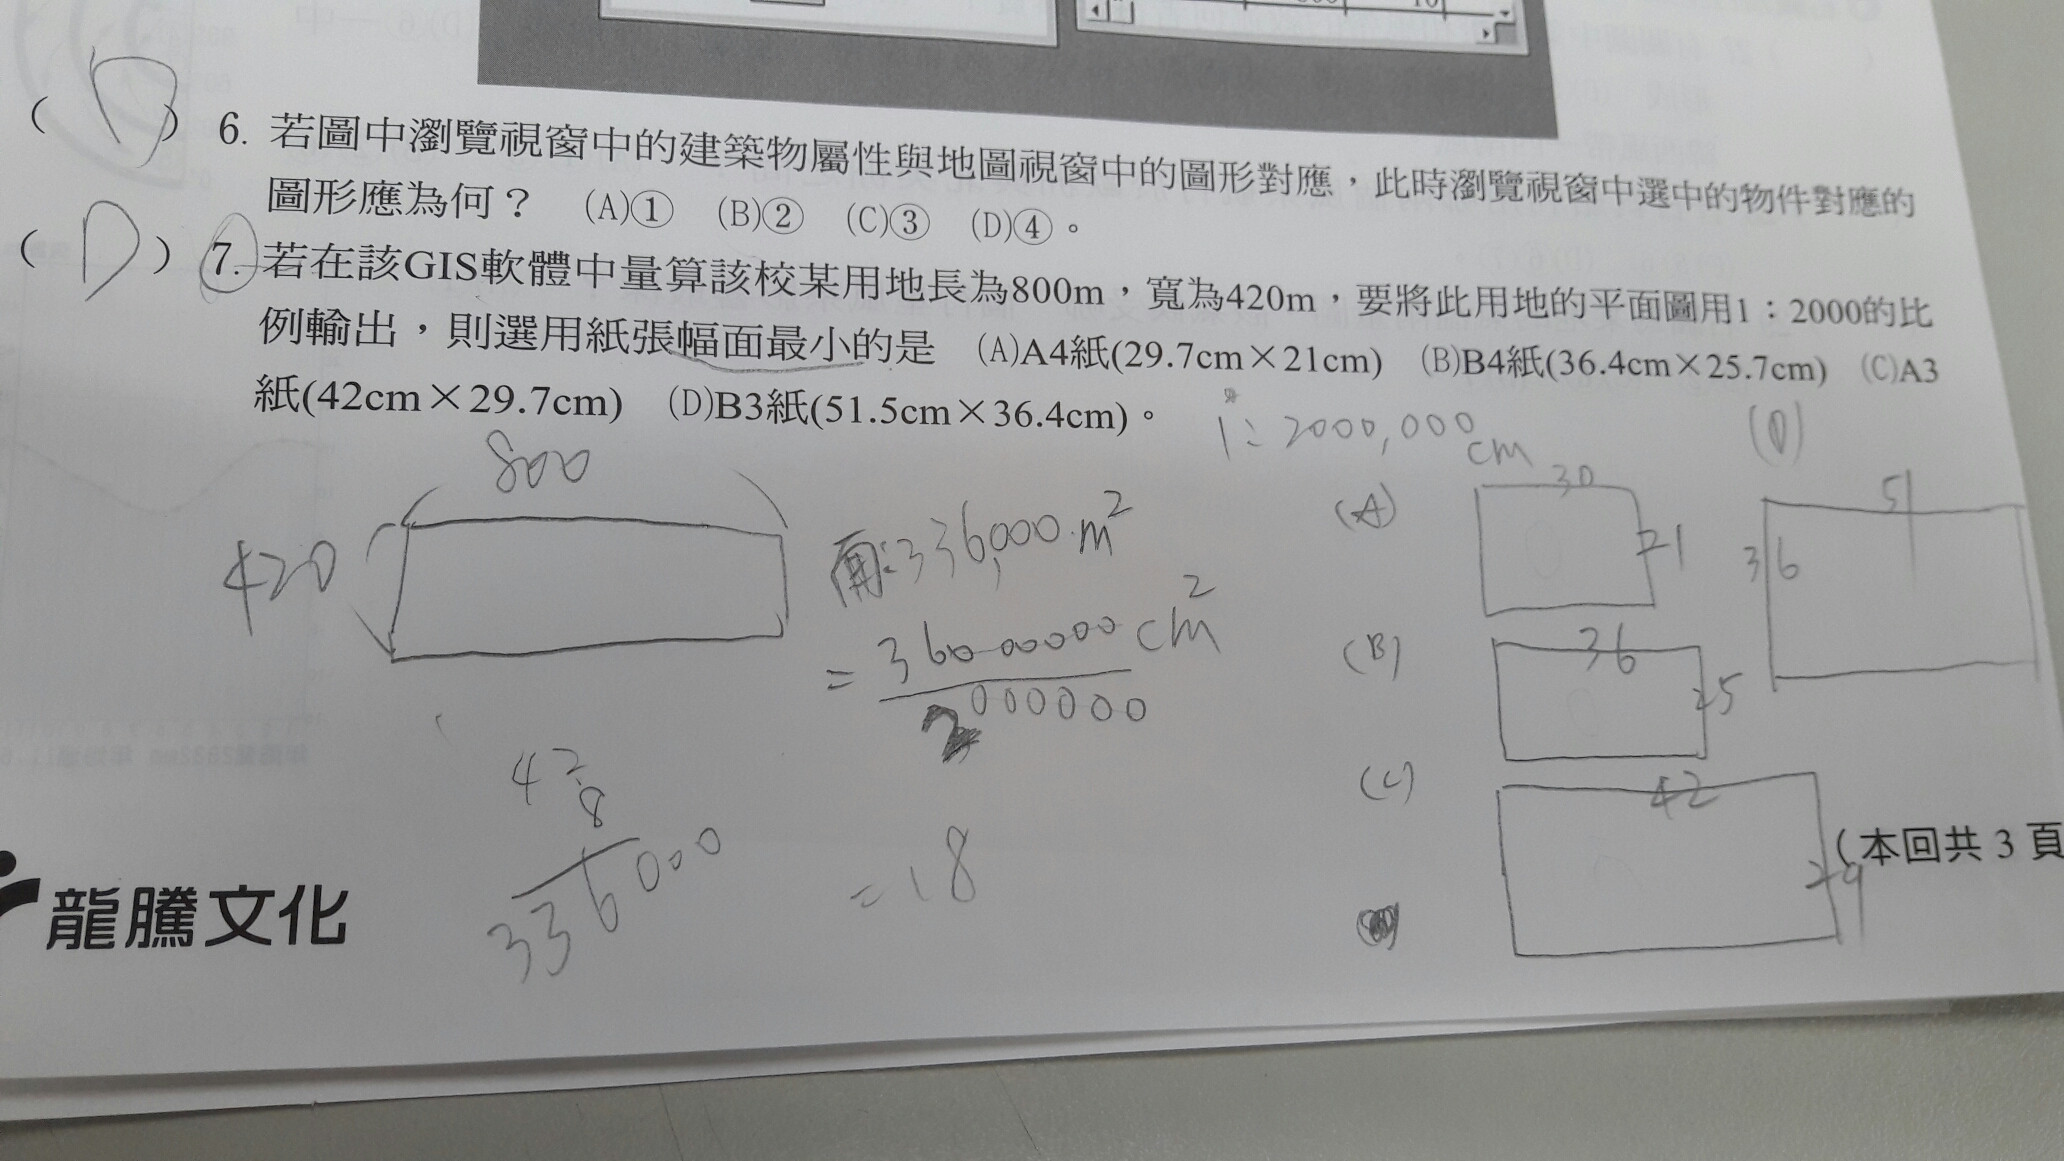 (D) 6. 若圖中瀏覽視窗中的建築物屬性與地圖視窗中的圖形對應，此時瀏覽視窗中選中的物件對應的
圖形應為何？ (A)① (B)② (C)③ (D)④。
(D) 7. 若在該GIS軟體中量算該校某用地長為800m，寬為420m，要將此用地的平面圖用1：2000的比
例輸出，則選用紙張幅面最小的是 (A)A4紙(29.7cm×21cm) (B)B4紙(36.4cm×25.7cm) (C)A3
紙(42cm×29.7cm) (D)B3紙(51.5cm×36.4cm)。
1：2000,000cm
800
420
336,000 m²
= 3600000000 cm²
2000000
= 18
42
8
336000
(A)
30
21
(B)
36
25
(C)
42
29
(D)
51
36
(本回共 3 頁
龍騰文化